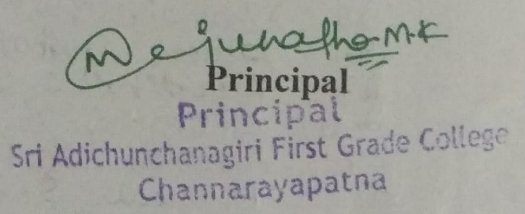 Mejunatha M.K
Principal
Principal
Sri Adichunchanagiri First Grade College
Channarayapatna